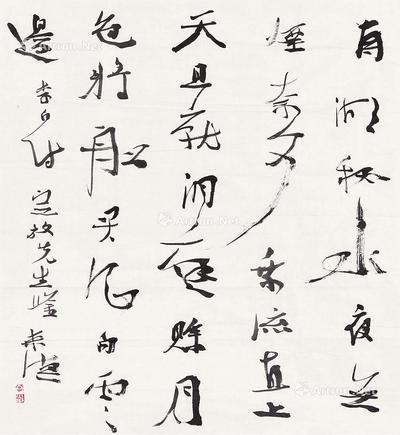 南湖秋水夜无
煙奈可乘流直上
天且就洞庭賒月
色將船買酒白雲
邊 李白詩 先生鑒
Artron.Net